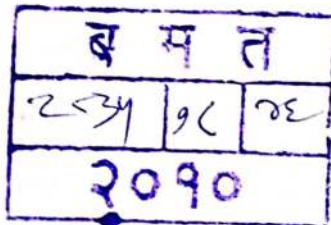 ब म त
२८३५ १८
२०१०